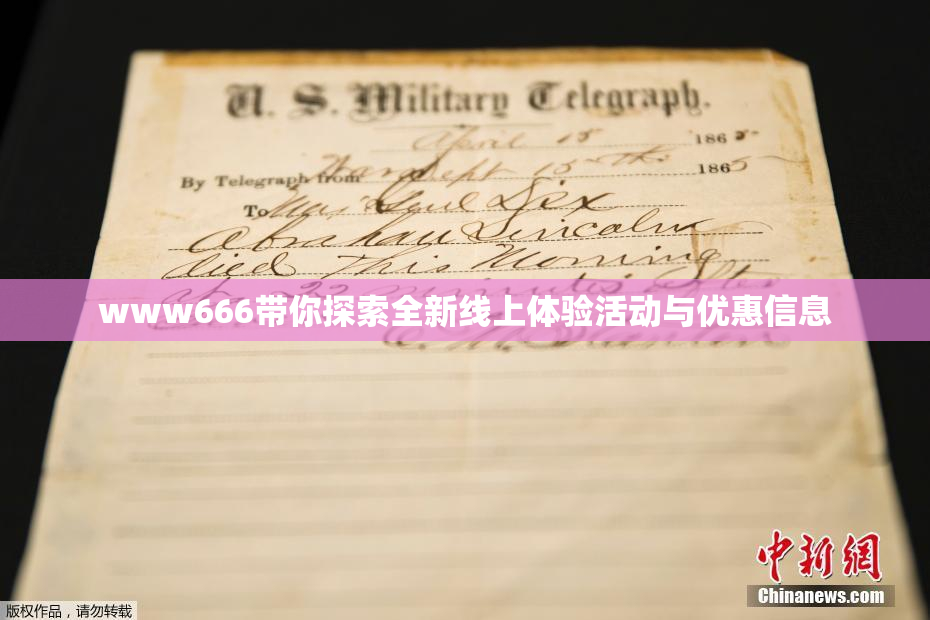 U. S. Military Telegraph.
April 15 1865
By Telegraph from War Dept 15th 1865
To Maj Genl Dix
Abraham Lincoln
died This Morning
at 22 minutes after
www666带你探索全新线上体验活动与优惠信息
中新网
Chinanews.com
版权作品，请勿转载